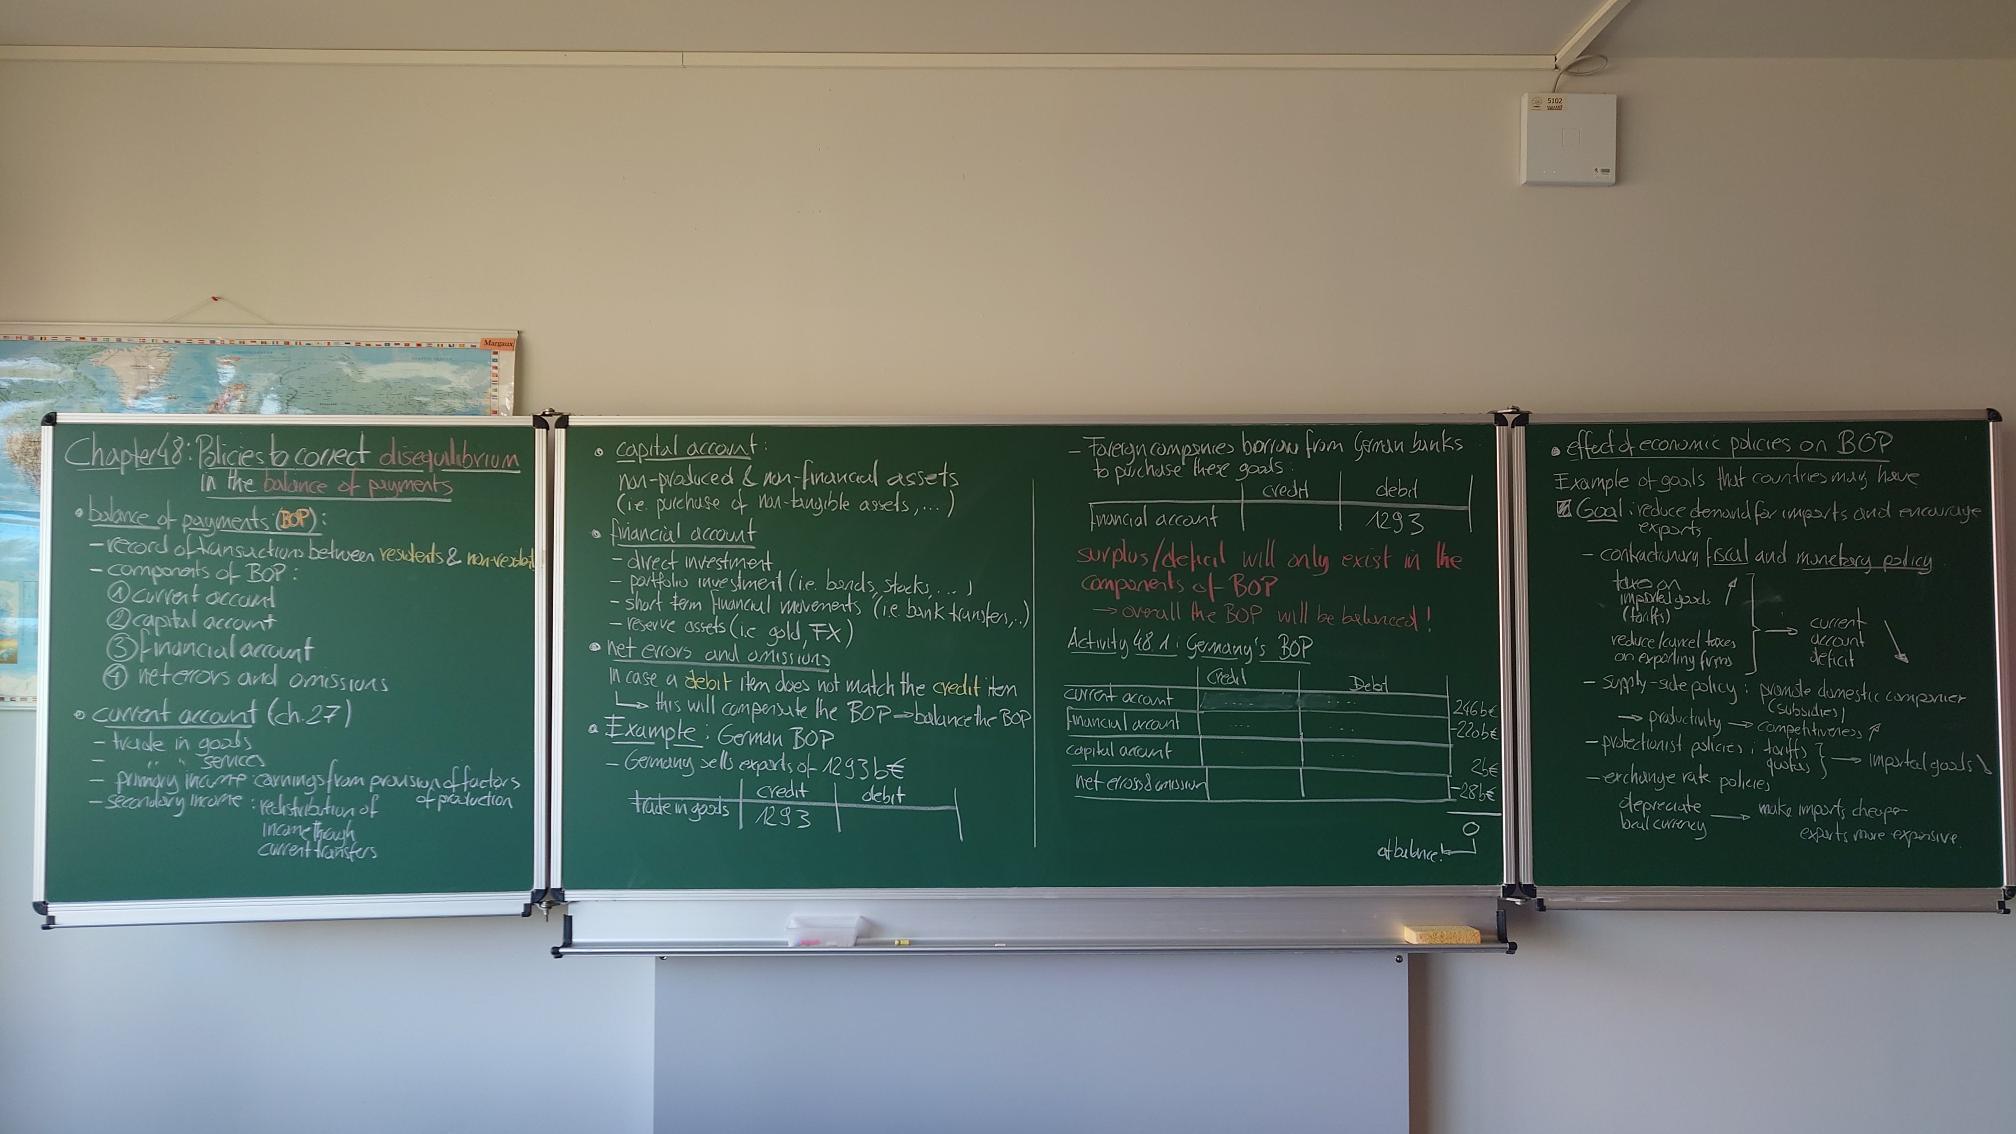 Margaux
5102
Chapter 48: Policies to correct disequilibrium
in the balance of payments
• balance of payments (BOP):
– record of transactions between residents &
– components of BOP:
① current account
② capital account
③ financial account
④ net errors and omissions
• current account (ch. 27)
– trade in goods
– " " services
– primary income: earnings from provision of factors
of production
– secondary income: redistribution of
income through
current transfers
• capital account:
non-produced & non-financial assets
(i.e. purchase of non-tangible assets, ...)
• financial account
– direct investment
– portfolio investment (i.e. bonds, stocks, ...)
– short term financial movements (i.e. bank transfers, ..)
– reserve assets (i.e. gold, FX)
• net errors and omissions
In case a debit item does not match the credit item
↳ this will compensate the BOP → balance the BOP
• Example: German BOP
– Germany sells exports of 1293b€
credit debit
trade in goods 1293
– Foreign companies borrow from German banks
to purchase these goods:
credit debit
financial account 1293
surplus/deficit will only exist in the
components of BOP
→ overall the BOP will be balanced!
Activity 48.1: Germany's BOP
Credit Debit
current account ... ... 246b€
financial account ... ... -220b€
capital account 2b€
net errors & omission -28b€
0
at balance!
• effect of economic policies on BOP
Example of goals that countries may have
Goal: reduce demand for imports and encourage
exports
– contractionary fiscal and monetary policy
taxes on
imported goods ↗
(tariffs)
reduce/cancel taxes
on exporting firms
→ current
account
deficit ↘
– supply-side policy: promote domestic companies
(subsidies)
→ productivity → competitiveness ↗
– protectionist policies: tariffs
quotas } → imported goods ↘
– exchange rate policies
depreciate
local currency → make imports cheaper
exports more expensive.